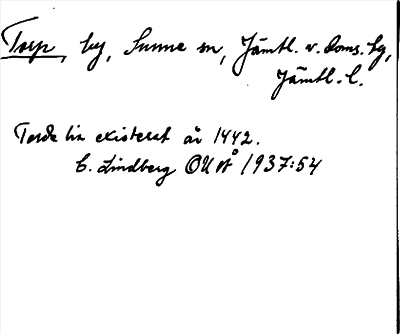 Torp, by, Sunne sn, Jämtl. v. doms. hg,
Jämtl. l.
Torde ha existerat år 1442.
C. Lindberg OUÅ 1937:54